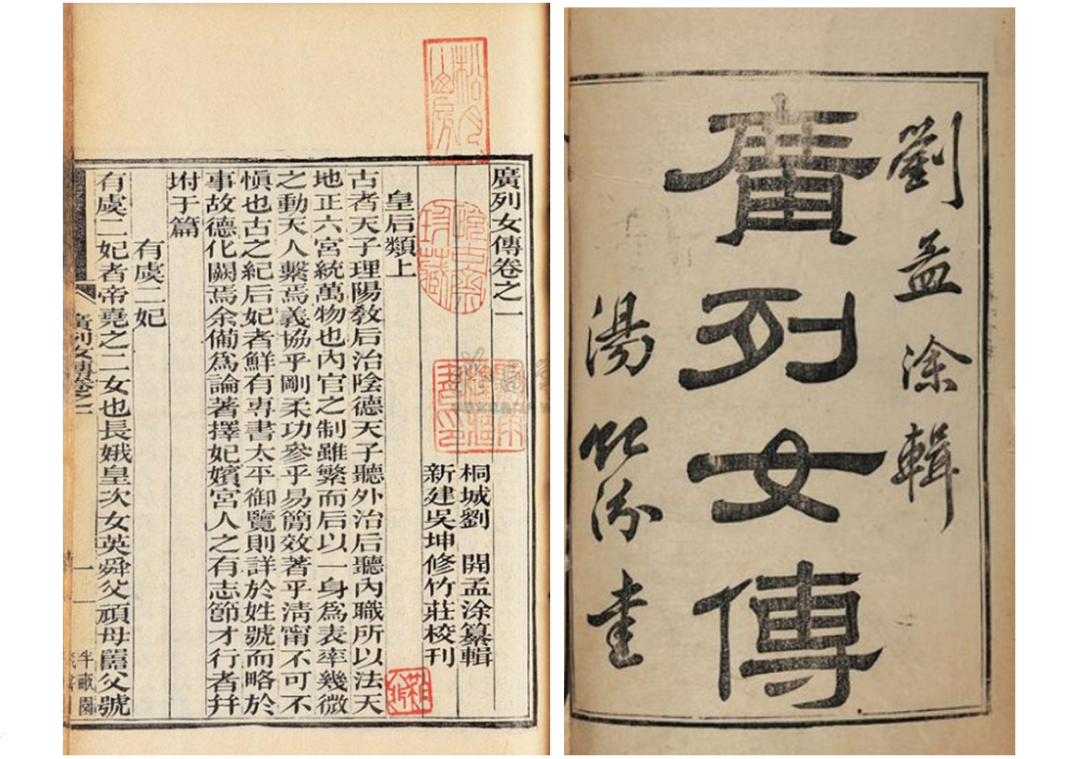 廣列女傳卷之一
桐城劉 開孟涂纂輯
新建吳坤修竹莊校刊
皇后類上
古者天子理陽敎后治陰德天子聽外治后聽內職所以法天
地正六宮統萬物也內官之制雖繁而后以一身爲表率幾微
之動天人繫焉義協乎剛柔功參乎易簡效著乎淸甯不可不
愼也古之紀后妃者鮮有專書太平御覽則詳於姓號而略於
事故德化闕焉余備爲論著擇妃嬪宮人之有志節才行者幷
坿于篇
有虞二妃
有虞二妃者帝堯之二女也長娥皇次女英舜父頑母嚚父號
廣列女傳卷之一
一
半畝園
劉孟涂輯
廣列女傳
湯貽汾書